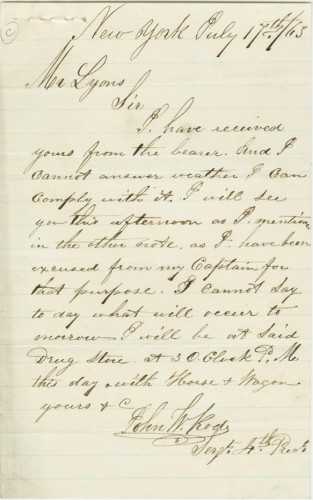 C
New York July 17th/63
Mr Lyons
Sir
I have received
yours from the bearer. And I
cannot answer weather I can
comply with it. I will see
you this afternoon as I mention
in the other note, as I have been
excused from my Captain for
that purpose. I cannot say
to day what will occur to
morrow I will be at said
Drug Store at 3 O.Clock P.M.
this day with Horse & Wagon
yours & C
John W.
Sergt. 4th Regt.